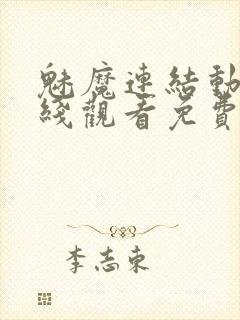 魅魔連結動
綫觀看免費
李志東